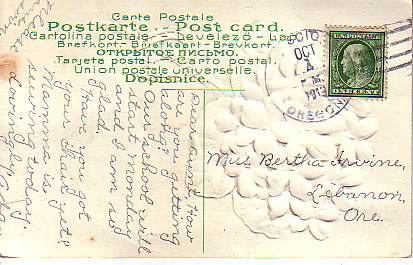 Carte Postale
Postkarte - Post card.
Cartolina postale - Levelező-lap
Brefkort - Briefkaart - Brevkort.
ОТКРЫТОЕ ПИСЬМО.
Tarjeta postal. - Carto postal.
Union postale universelle.
Dopisnice.
SCIO
OCT
4
M
1913
OREGON
ONE CENT
Dear Aunt: How
are you getting
along? Our school will
start Monday
and I am so
glad.
Have you got
your shade yet?
Mamma is
sewing today.
Miss Bertha Irvine,
Lebanon,
Ore.